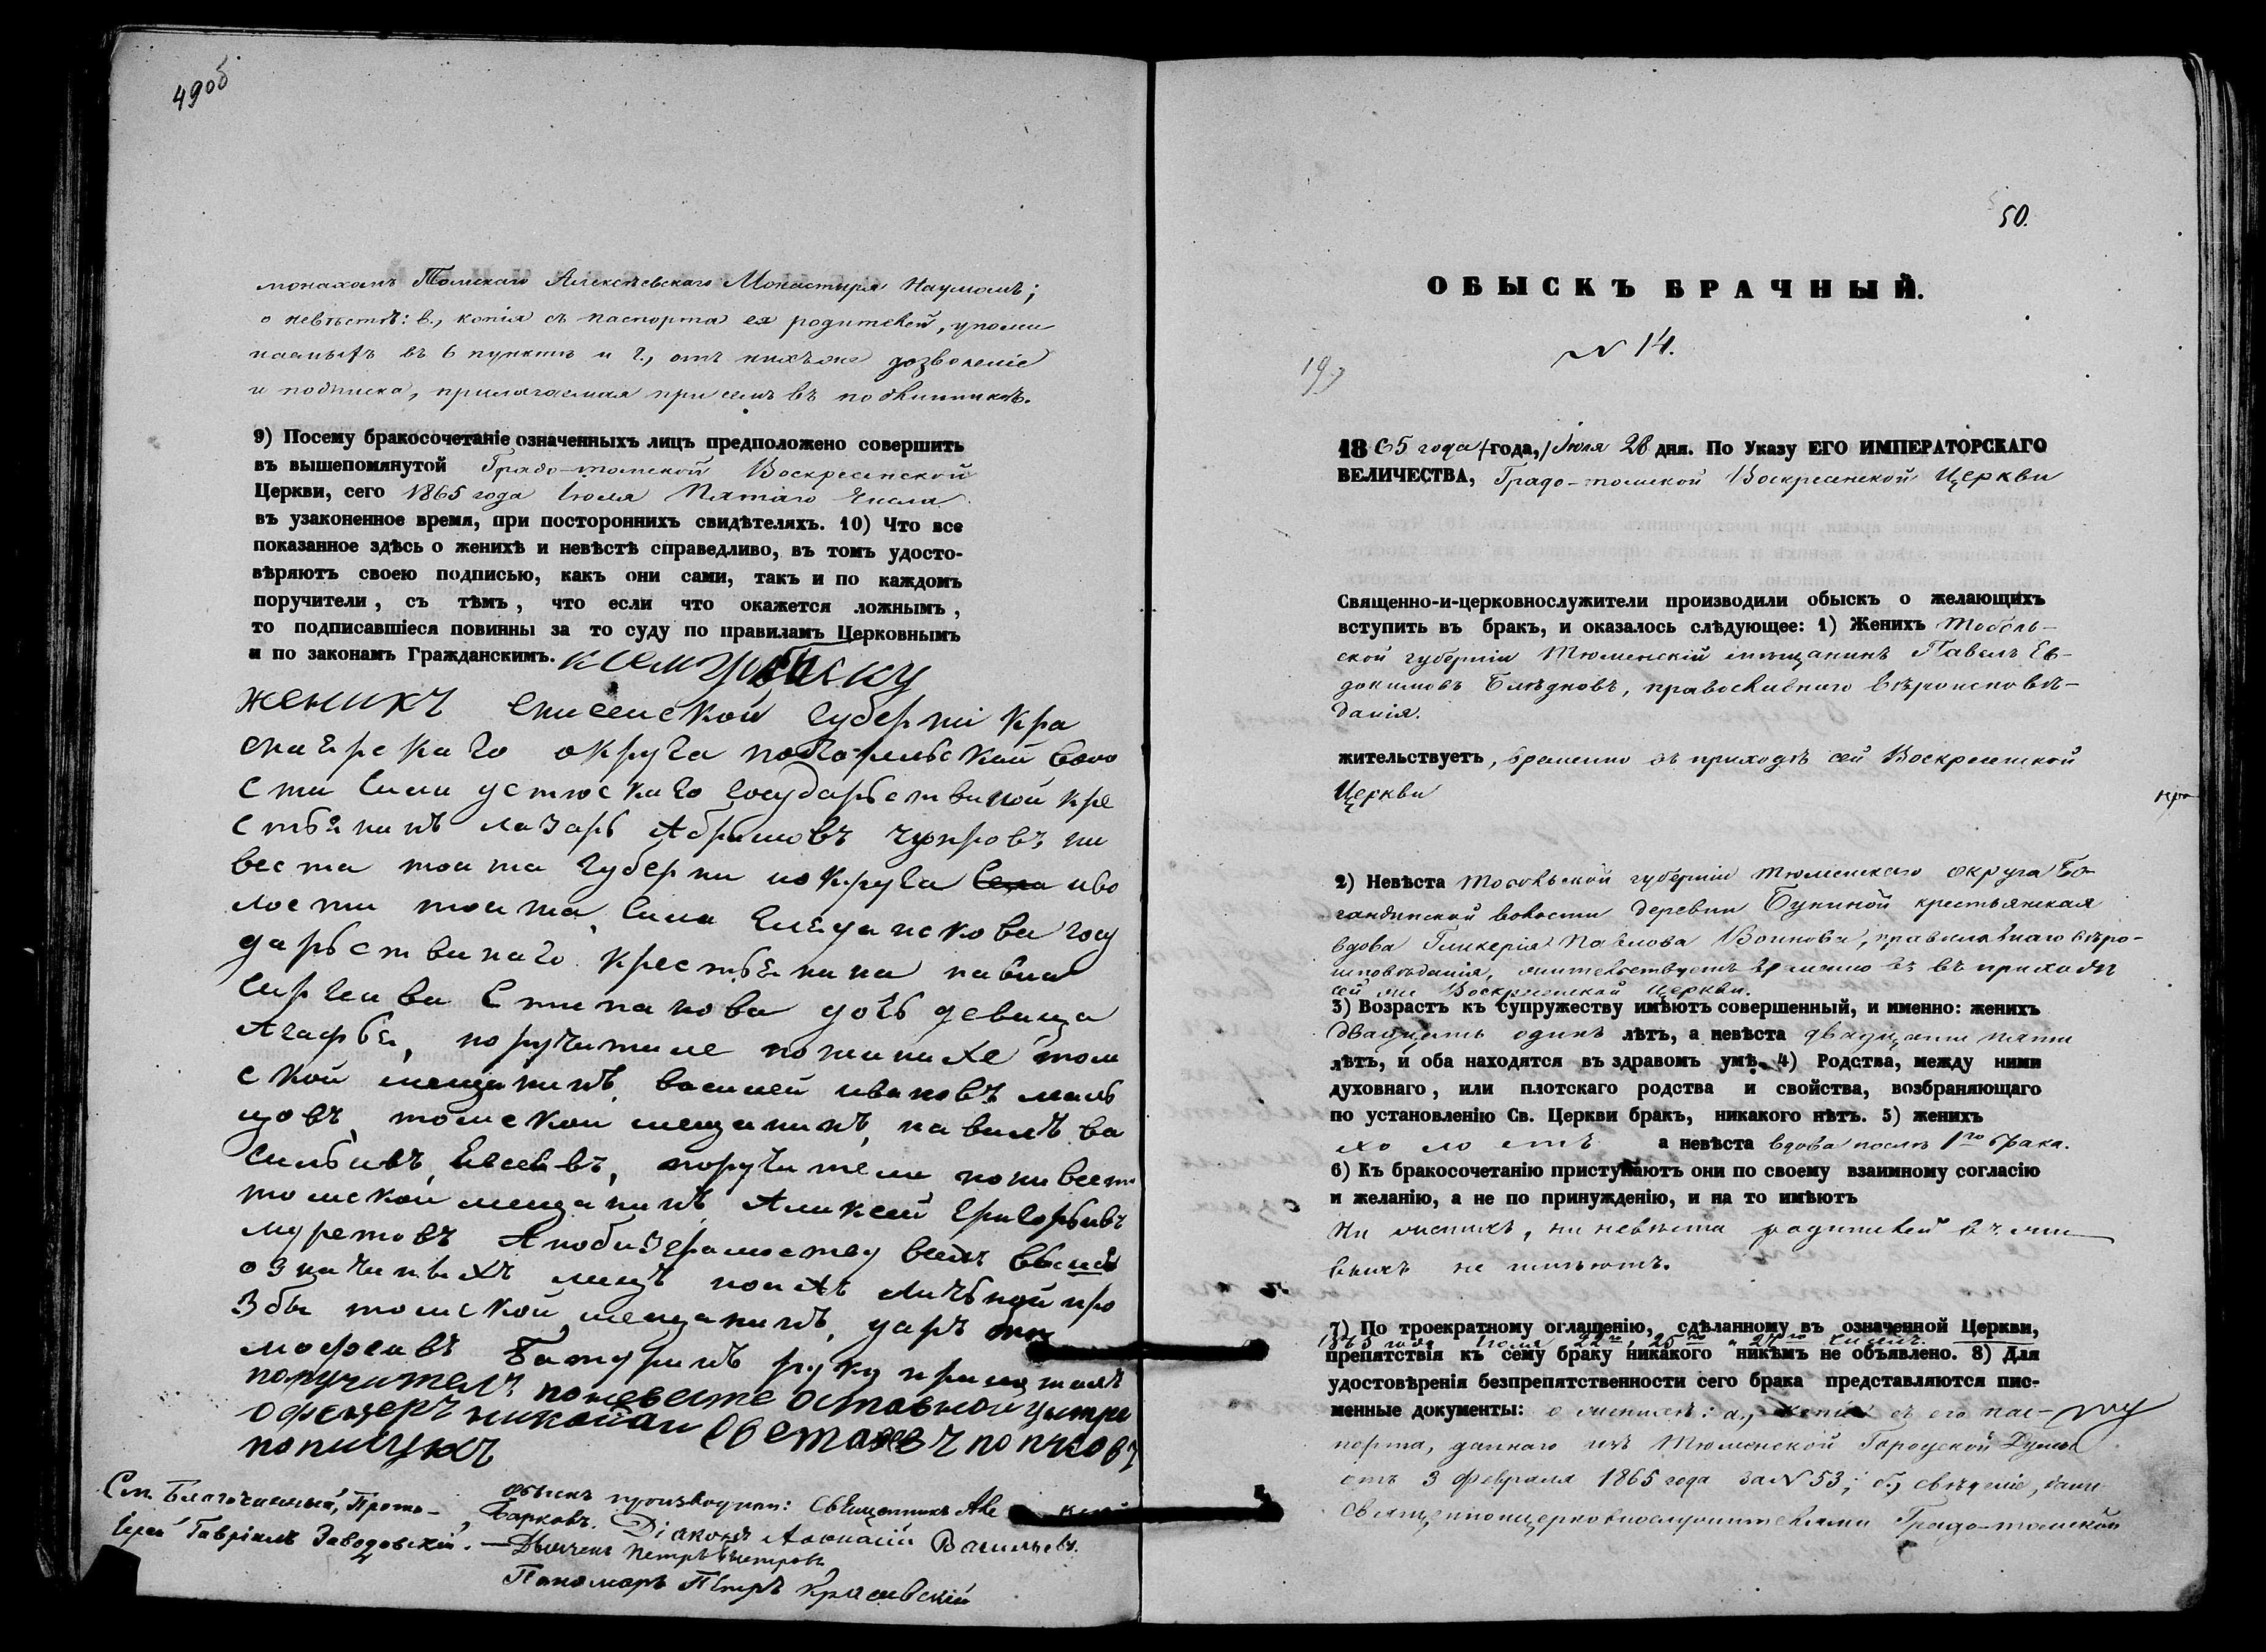 49об
монахомъ Томскаго Алексѣевскаго Монастыря Наумомъ;
о невѣстѣ: в., копія съ паспорта ея родителей, упоми
наемыхъ въ 6 пунктѣ и г., отъ нихъ же дозволеніе
и подписка, прилагаемая при семъ въ подлинникѣ.
9) Посему бракосочетаніе означенныхъ лицъ предположено совершить
въ вышепомянутой Градо-томской Воскресенской
Церкви, сего 1865 года Іюля Пятаго числа
въ узаконенное время, при постороннихъ свидѣтеляхъ. 10) Что все
показанное здѣсь о женихѣ и невѣстѣ справедливо, въ томъ удосто-
вѣряютъ своею подписью, какъ они сами, такъ и по каждомъ
поручители, съ тѣмъ, что если что окажется ложнымъ,
то подписавшіеся повинны за то суду по правиламъ Церковнымъ
и по законамъ Гражданскимъ. к сему обыску
женихъ Енисейской губерни Кра
снаярскаго округа
сти села государственной кре
стьянинъ лазарь Абрамовъ чупровъ ни
веста тоита губерни и округа иво
лости тоита села госу
дарьственаго крестьянина павла
Сиргеива Стипанова дочь девица
Агафья, поручители пожинихе том
ской мещанинъ, василей ивановъ маль
цовъ, томской мещанинъ, павилъ ва
сильивъ, Евсеевъ, поручители пониве
томской мещанинъ Аликсей Григорьивъ
муретовъ Анобизграмоству
означиныхъ лицъ поихъ личьной про
збы томской мещанинъ,
Батуринъ руку приложилъ
поручитель поневесте оставной унтре
офецеръ николаи
Обыскъ производили: Священникъ
Барковъ. Діаконъ Афанасій Васильевъ.
См. Благочинный, Прото-
іерей Гавріилъ Заводовскій.
Дьячекъ Петръ Петровъ
Пономарь Петръ Красивскій
50.
ОБЫСКЪ БРАЧНЫЙ.
N 14.
1865 года /года,/ Іюля 28 дня. По Указу ЕГО ИМПЕРАТОРСКАГО
ВЕЛИЧЕСТВА, Градо-томской Воскресенской Церкви
Священно-и-церковнослужители производили обыскъ о желающихъ
вступить въ бракъ, и оказалось слѣдующее: 1) Женихъ Тоболь-
ской губерніи Тюменскій мѣщанинъ Павелъ Ев-
докимовъ Блѣдновъ, православнаго вѣроисповѣ-
данія.
жительствуетъ, временно въ приходѣ сей Воскресенской
Церкви
2) Невѣста Тобольской губерніи Тюменскаго округа Бо-
гандинской волости деревни Букиной крестьянская
вдова Гликерія Павлова Воинова, православнаго вѣро-
исповѣданія, жительствуетъ временно въ въ приходѣ
сей же Воскресенской Церкви.
3) Возрастъ къ супружеству имѣютъ совершенный, и именно: женихъ
двадцать одинъ лѣтъ, а невѣста двадцати пяти
лѣтъ, и оба находятся въ здравомъ умѣ. 4) Родства, между ними
духовнаго, или плотскаго родства и свойства, возбраняющаго
по установленію Св. Церкви бракъ, никакого нѣтъ. 5) женихъ
холостъ а невѣста вдова послѣ 1го брака.
6) Къ бракосочетанію приступаютъ они по своему взаимному согласію
и желанію, а не по принужденію, и на то имѣютъ
Ни женихъ, ни невѣста родителей въ жи
выхъ не имѣютъ.
7) По троекратному оглашенію, сдѣланному въ означенной Церкви,
1865 года Іюля 22го, 25го и 27го чиселъ.
препятствія къ сему браку никакого никѣмъ не объявлено. 8) Для
удостовѣренія безпрепятственности сего брака представляются пис-
менные документы: о женихѣ: а., копія съ его пас-
порта, даннаго изъ Тюменской Городской Думы
отъ 3 февраля 1865 года за N 53; б., свѣденіе, данн
священноцерковнослужителями Градо-томской